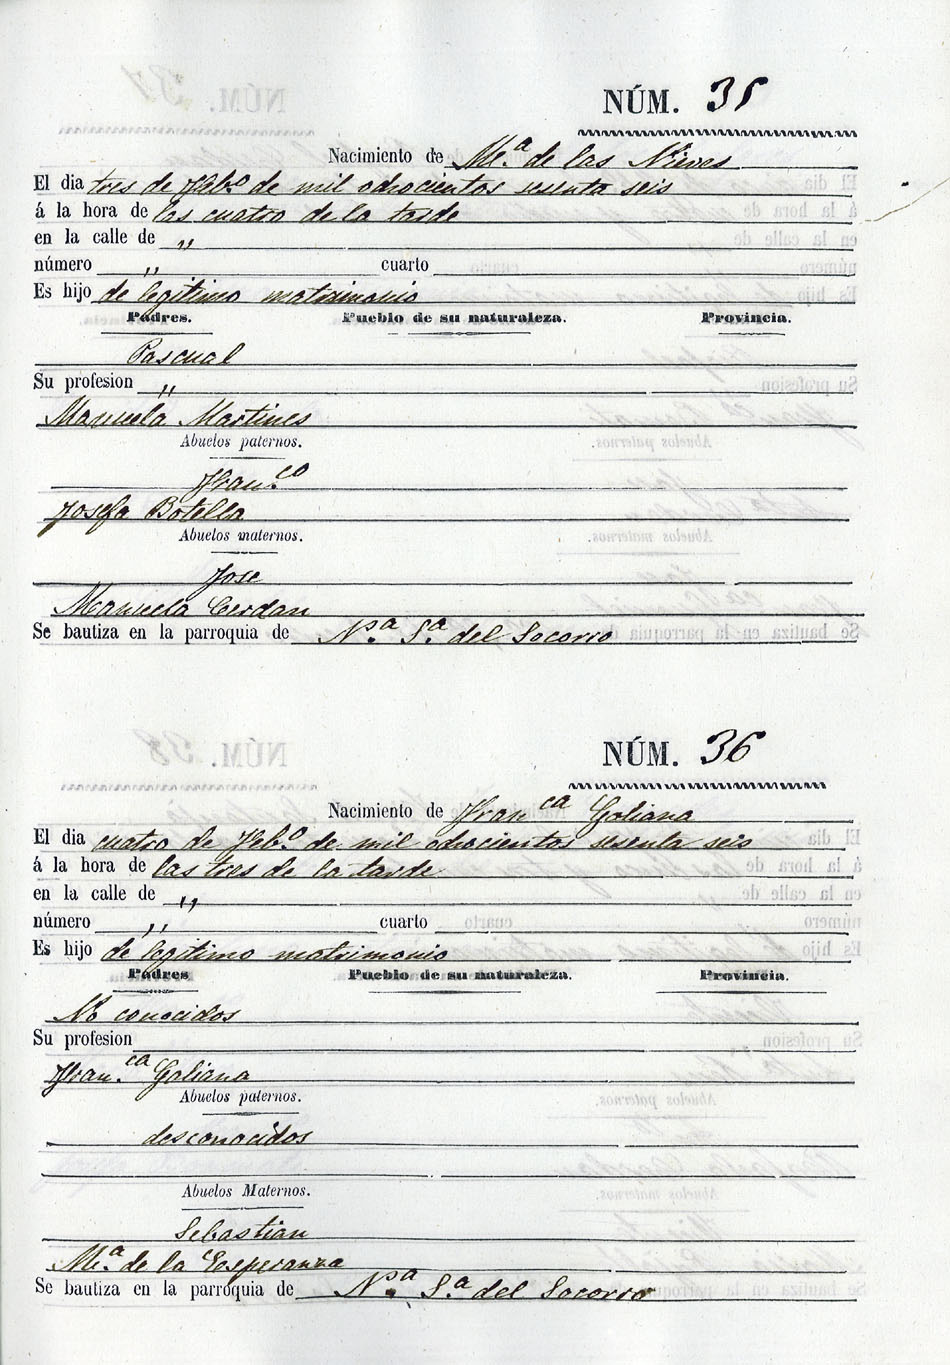 NÚM. 35
Nacimiento de M.ª de las Nieves
El dia tres de Feb.º de mil ochocientos sesenta seis
á la hora de las cuatro de la tarde
en la calle de „
número „ cuarto
Es hijo de legitimo matrimonio
Padres. Pueblo de su naturaleza. Provincia.
Pascual
Su profesion „
Manuela Martines
Abuelos paternos.
Fran.co
Josefa Botella
Abuelos maternos.
Jose
Manuela Cerdan
Se bautiza en la parroquia de N.ª S.ª del Socorro
NÚM. 36
Nacimiento de Fran.ca Galiana
El dia cuatro de Feb.º de mil ochocientos sesenta seis
á la hora de las tres de la tarde
en la calle de „
número „ cuarto
Es hijo de legitimo matrimonio
Padres Pueblo de su naturaleza. Provincia.
No conocidos
Su profesion
Fran.ca Galiana
Abuelos paternos.
desconocidos
Abuelos Maternos.
Sebastian
M.ª de la Esperanza
Se bautiza en la parroquia de N.ª S.ª del Socorro